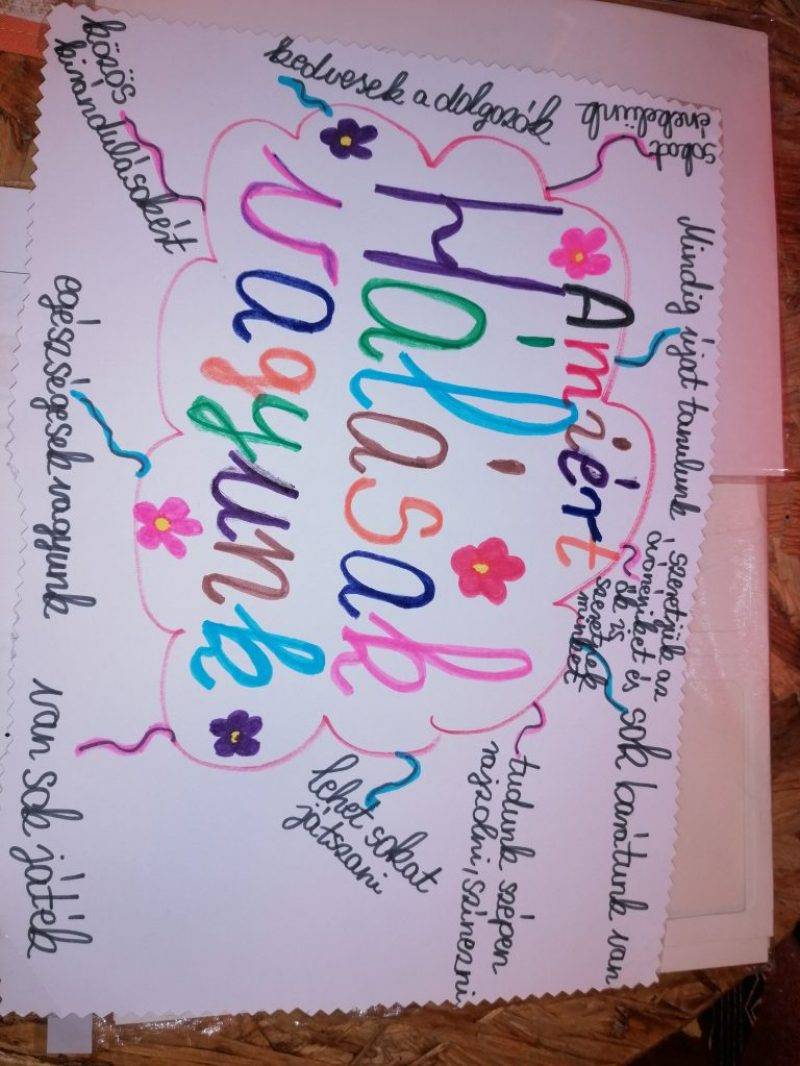 Amiért
Hálásak
vagyunk
sokat
énekelünk
Mindig újat tanulunk
, szeretjük az
és
ők is
szeretnek
minket
sok barátunk van
tudunk szépen
rajzolni, színezni
lehet sokat
játszani
van sok játék
egészségesek vagyunk
közös
kirándulásokért
kedvesek a dolgozók